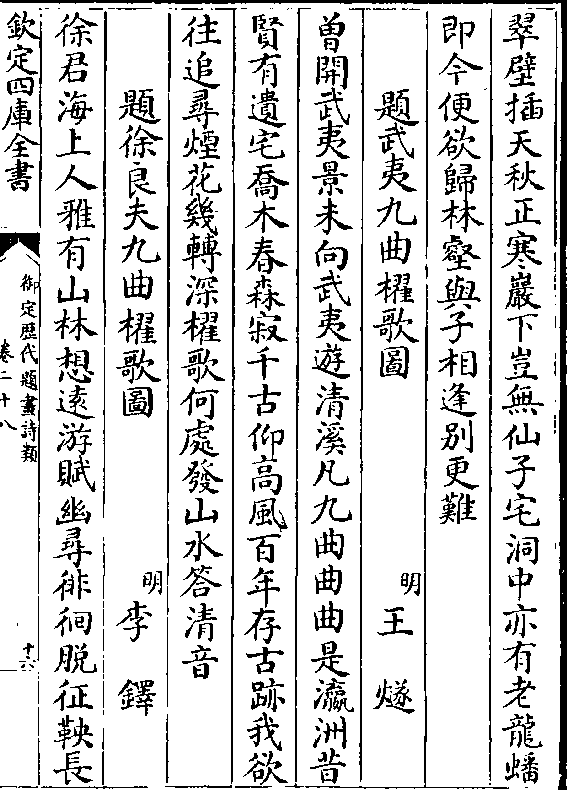 翠壁插天秋正寒巖下豈無仙子宅洞中亦有老龍蟠
即今便欲歸林壑與子相逢别更難
題武夷九曲櫂歌圖
明王燧
曽開武夷景未向武夷遊清溪凡九曲曲曲是瀛洲昔
賢有遺宅喬木春森寂千古仰高風百年存古跡我欲
往追尋煙花幾轉深櫂歌何處發山水答清音
題徐良夫九曲櫂歌圖
明李鐸
徐君海上人雅有山林想逺游賦幽尋徘徊脱征鞅長
欽定四庫全書
御定歴代題畫詩類
卷二十八
十六